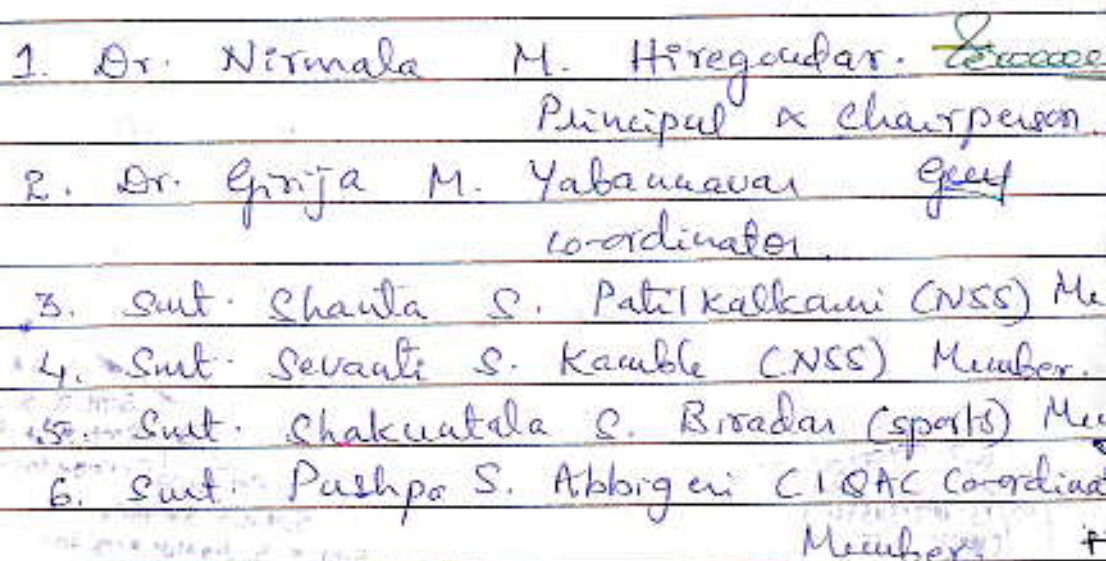 1. Dr. Nirmala M. Hiregoudar.
Principal & Chairperson.
2. Dr. Girija M. Yabannavar
co-ordinator.
3. Smt. Shanta S. Patil kalkami (NSS) Me
4. Smt. Sevanti S. Kamble (NSS) Member.
5. Smt. Shakuntala S. Biradar (sports) Me
6. Smt. Pushpa S. Abbigeri (IQAC Co-ordinat
Member.